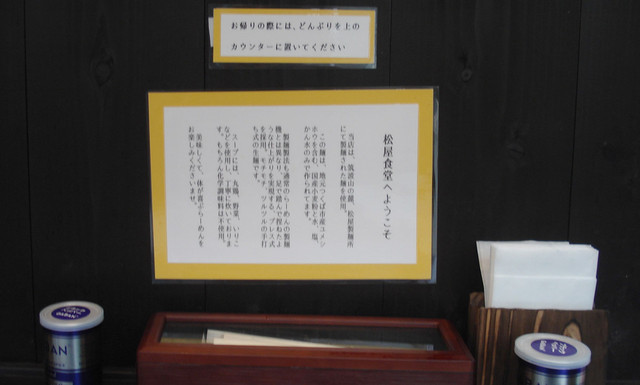 お帰りの際には、どんぶりを上の
カウンターに置いてください
松屋食堂へようこそ
当店は、筑波山の麓、松屋製麺所
にて製麺された麺を使用。
この麺は、地元つくば市産ユメシ
ホウを含む、国産小麦粉と水、塩、
かん水のみで作られてます。
製麺製法も通常のらーめんの製麺
機とは異なり、足で踏んで捏ねたよ
うな仕上がりを実現する、プレス式
を採用。モチモチ、ツルツルの手打
ち式の生麺です。
スープには、丸鶏、野菜、いりこ
などを使用し、丁寧に炊いておりま
す。もちろん化学調味料は不使用。
美味しくて、体が喜ぶらーめんを
お楽しみくださいませ。
JAPAN
AN